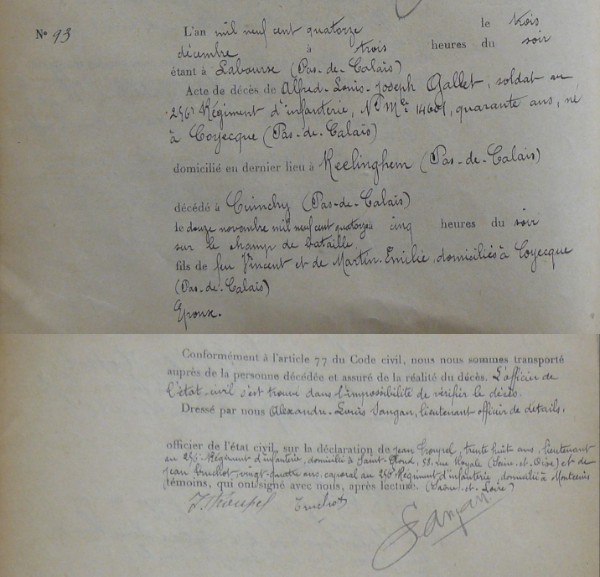 L'an mil neuf cent quatorze le trois
N° 93
décembre à trois heures du soir
étant à Labourse (Pas-de-Calais)
Acte de décès de Alfred-Louis-Joseph Gallet, soldat au
256e Régiment d'infanterie, N° Mle 14601, quarante ans, né
à Coyecque (Pas-de-Calais)
domicilié en dernier lieu à Reclinghem (Pas-de-Calais)
décédé à Cuinchy (Pas-de-Calais)
le douze novembre mil neuf cent quatorze à cinq heures du soir
sur le champ de bataille
fils de feu Vincent et de Martin Emilie, domiciliés à Coyecque
(Pas-de-Calais)
Epoux.
Conformément à l'article 77 du Code civil, nous nous sommes transporté
auprès de la personne décédée et assuré de la réalité du décès. L'officier de
l'état-civil s'est trouvé dans l'impossibilité de vérifier le décès.
Dressé par nous Alexandre-Louis lieutenant officier de détails,
officier de l'état civil, sur la déclaration de Jean trente huit ans, lieutenant
au 256e Régiment d'infanterie, domicilié à Saint-Cloud, 58, rue Royale (Seine-et-Oise) et de
Jean Truchot, vingt quatre ans, caporal au 256e Régiment d'infanterie, domicilié à Montcenis
témoins, qui ont signé avec nous, après lecture. (Saône-et-Loire)
Truchot